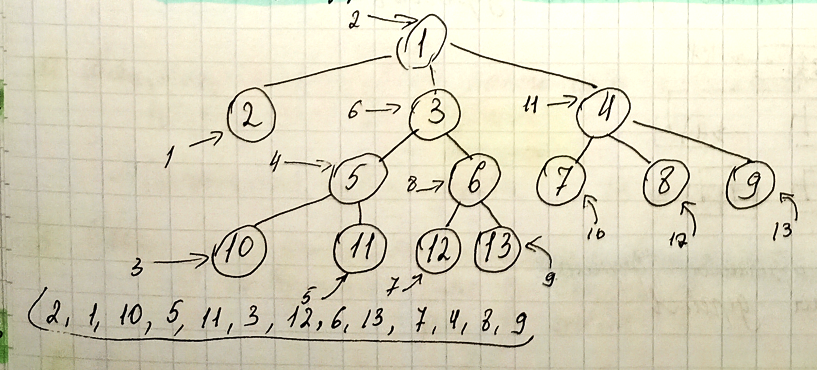 2 → 1
2 6 → 3 11 → 4
1 → 4 → 5 8 → 6 7 8 9
10 12 13
3 → 10 11 12 13
5 7 9
(2, 1, 10, 5, 11, 3, 12, 6, 13, 7, 4, 8, 9